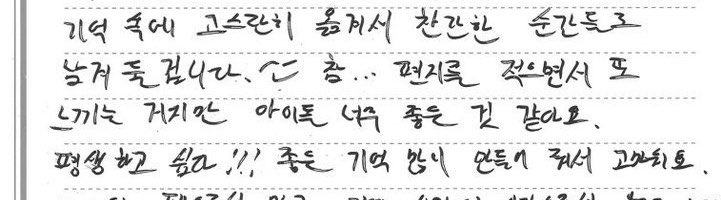 기억 속에 고스란히 옮겨서 찬란한 순간들로
남겨 둘겁니다. ^^ 참... 편지를 적으면서 또
느끼는 거지만 아이돌 너무 좋은 것 같아요.
평생 하고 싶다!!! 좋은 기억 많이 만들어 줘서 고마워요.